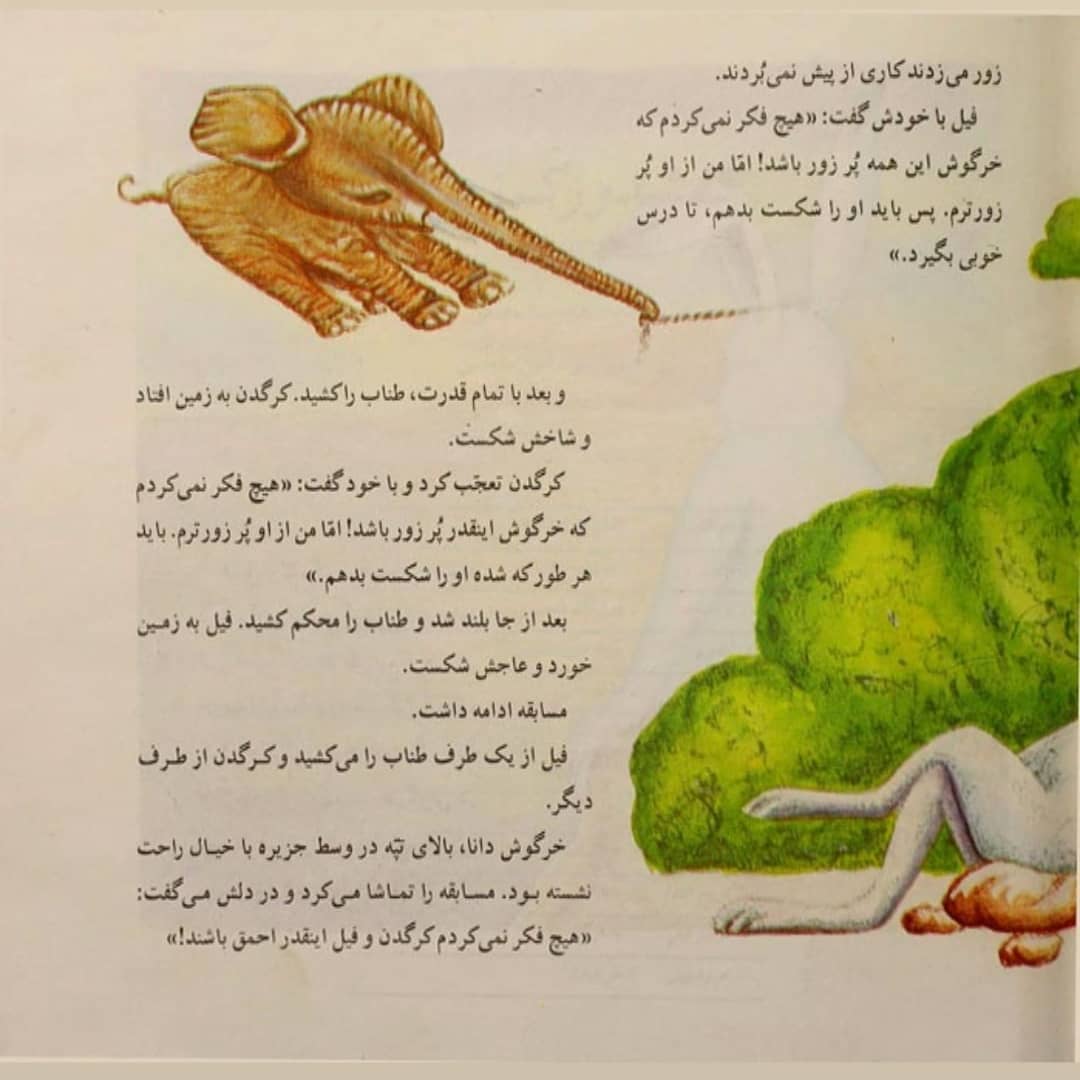 زور می‌زدند کاری از پیش نمی‌بُردند.
فیل با خودش گفت: «هیچ فکر نمی‌کردم که
خرگوش این همه پُر زور باشد! امّا من از او پُر
زورترم. پس باید او را شکست بدهم، تا درس
خوبی بگیرد.»
و بعد با تمام قدرت، طناب را کشید. کرگدن به زمین افتاد
و شاخش شکست.
کرگدن تعجّب کرد و با خود گفت: «هیچ فکر نمی‌کردم
که خرگوش اینقدر پُر زور باشد! امّا من از او پُر زورترم. باید
هر طور که شده او را شکست بدهم.»
بعد از جا بلند شد و طناب را محکم کشید. فیل به زمین
خورد و عاجش شکست.
مسابقه ادامه داشت.
فیل از یک طرف طناب را می‌کشید و کرگدن از طرف
دیگر.
خرگوش دانا، بالای تپّه در وسط جزیره با خیال راحت
نشسته بود. مسابقه را تماشا می‌کرد و در دلش می‌گفت:
«هیچ فکر نمی‌کردم کرگدن و فیل اینقدر احمق باشند!»